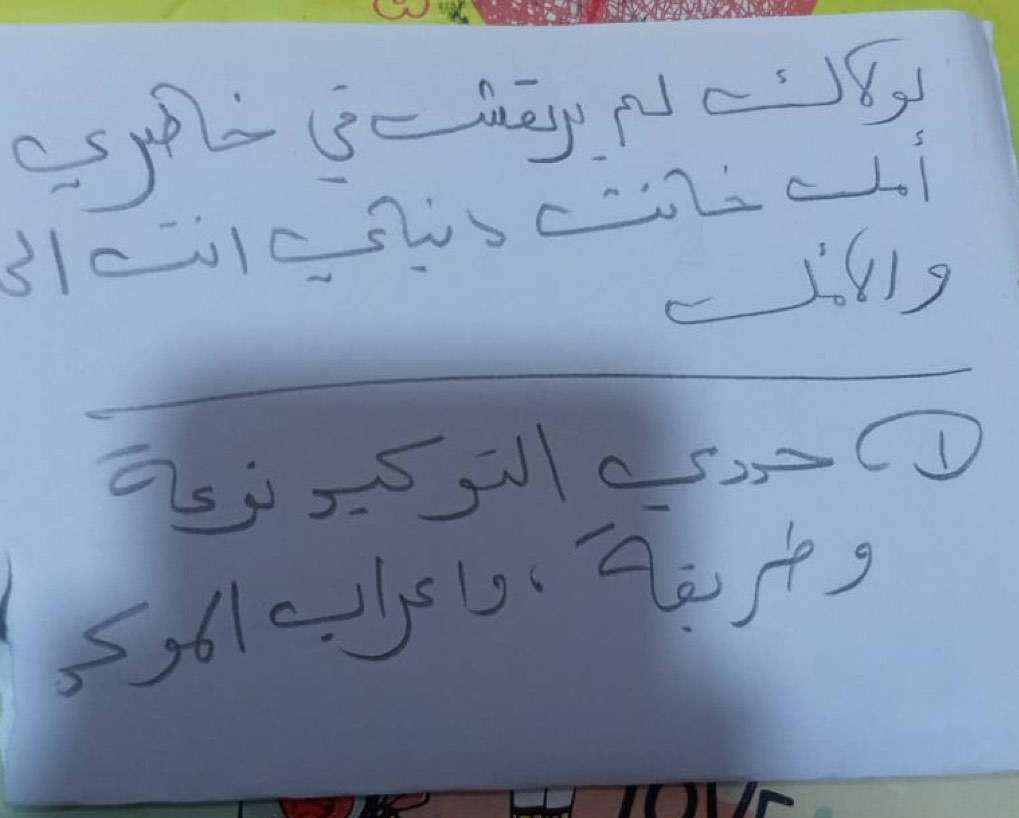 لولاك لم يرتقش في خاطري
أمل خانت دنياي انت الى
والأمل
١) حددي التوكيد نوعة
وطريقة ، واعراب الموكد
LOVE